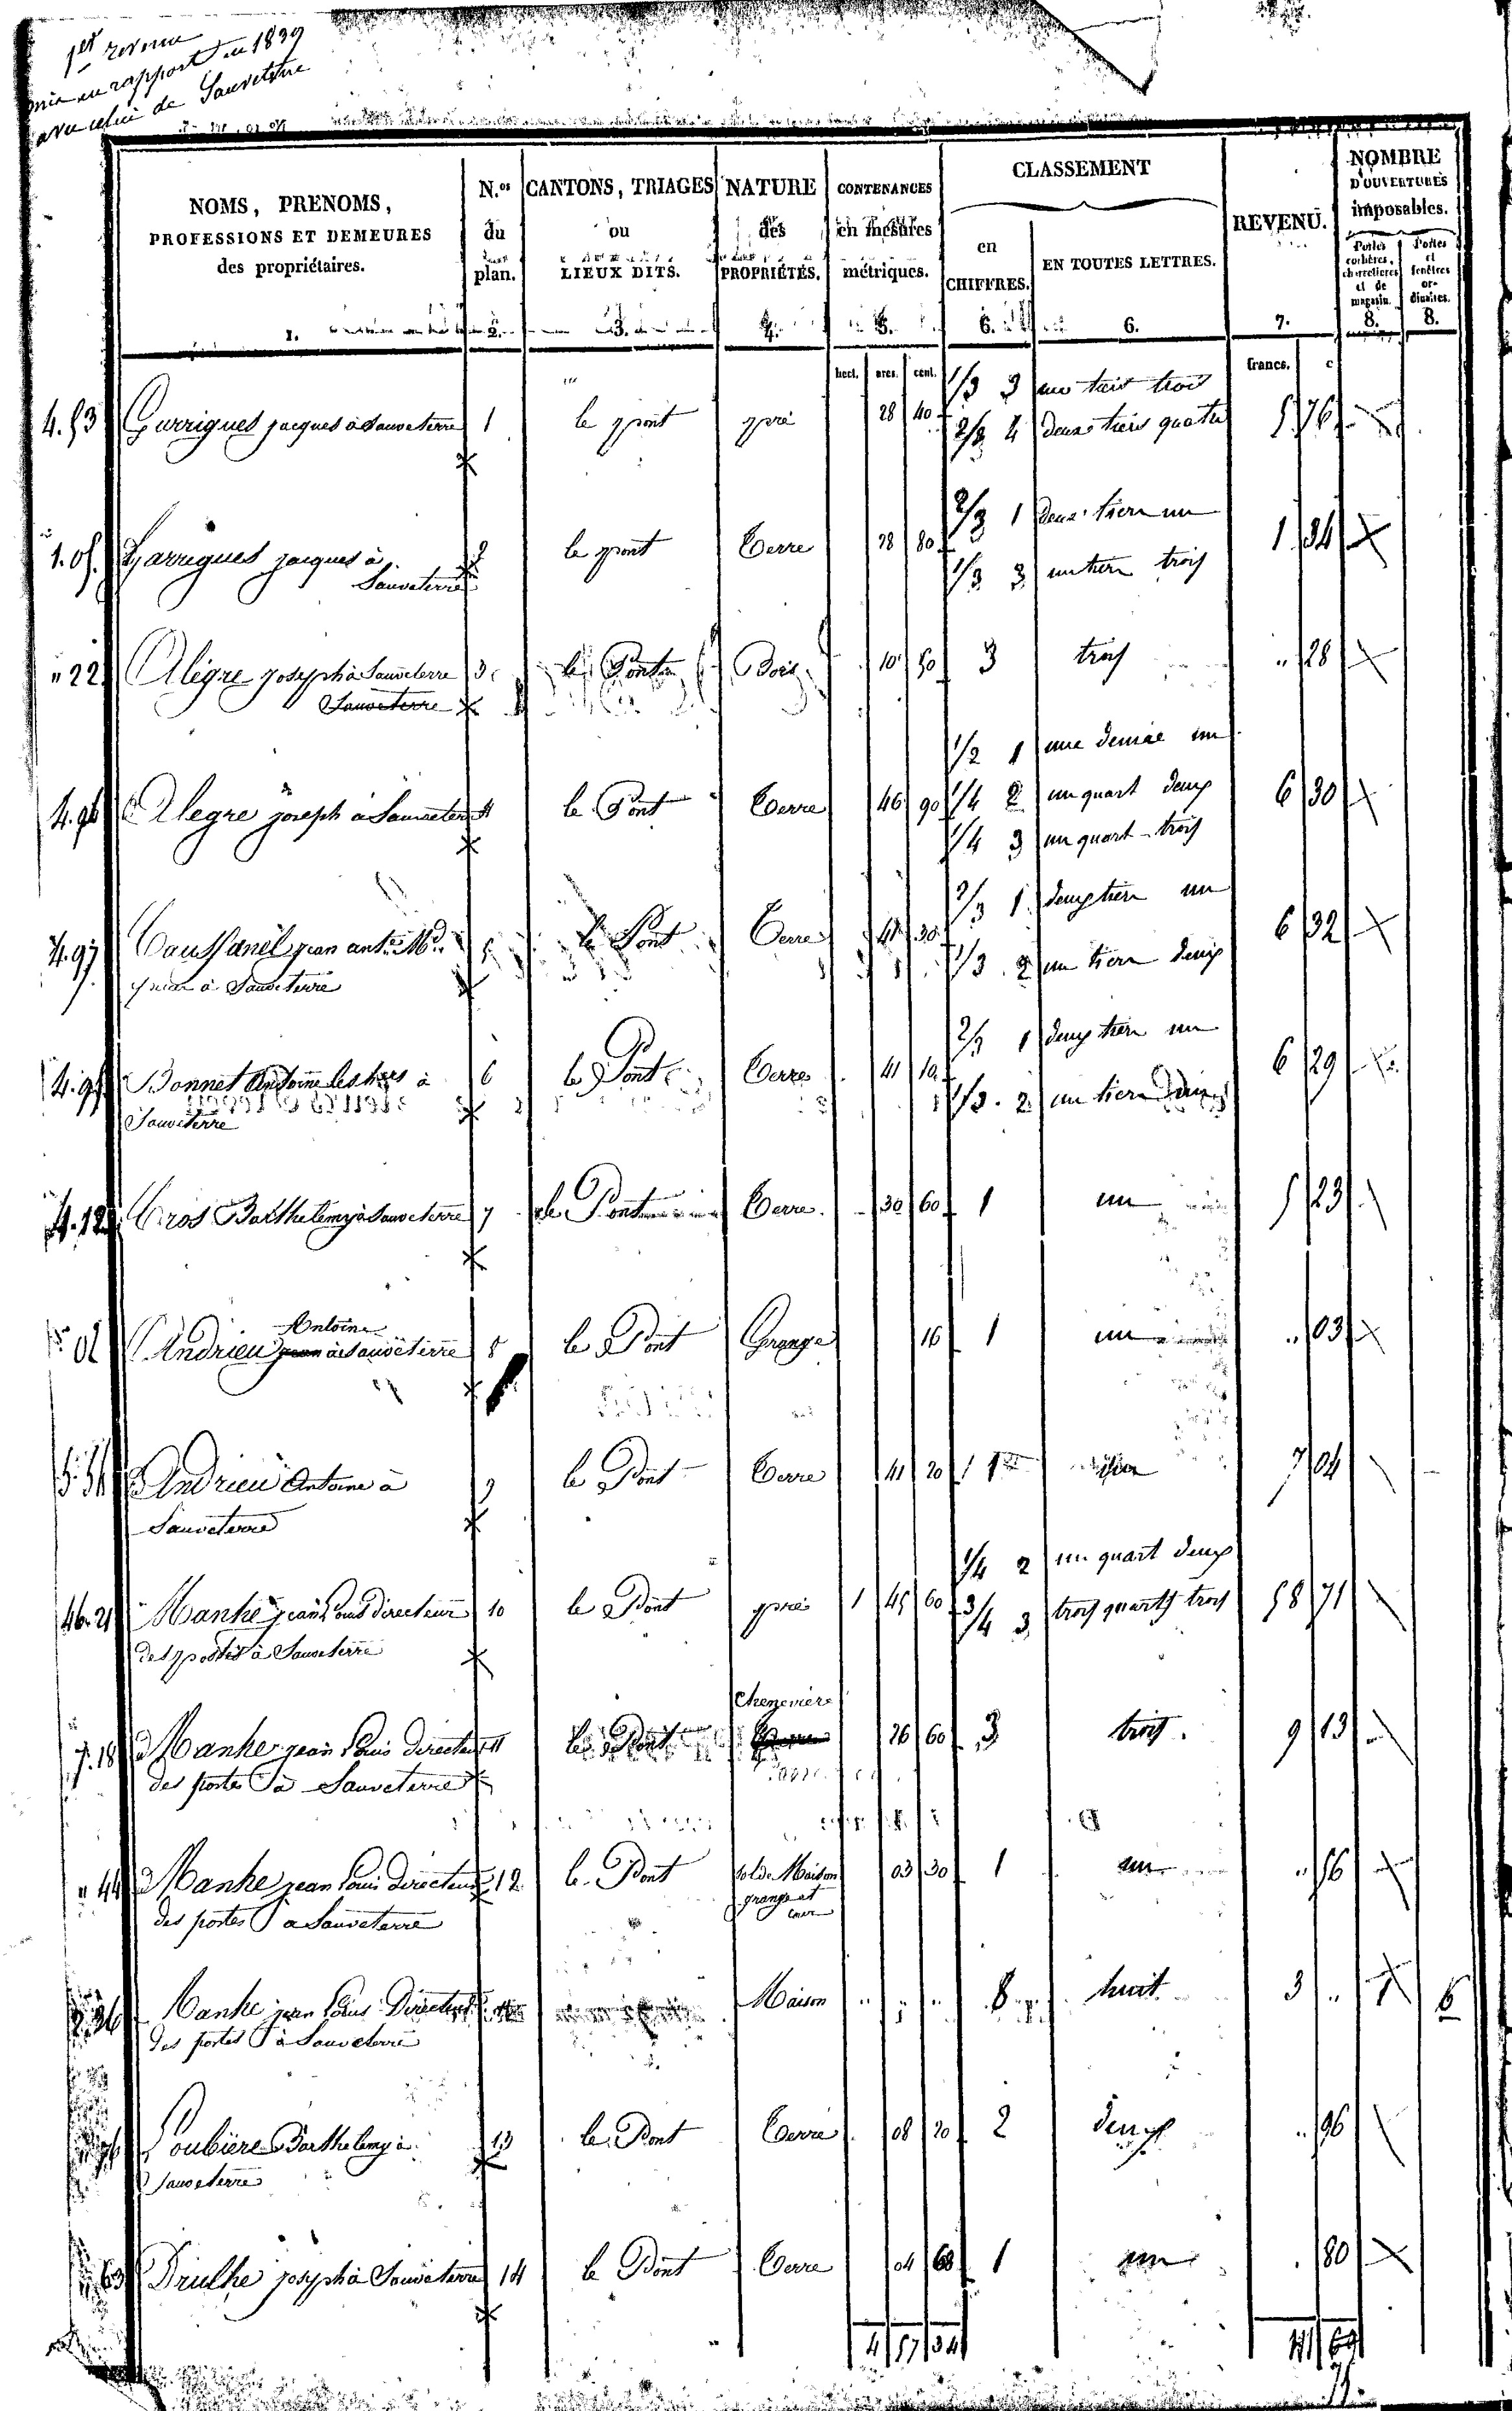 1er revenu
mis en rapport en 1839
avec celui de Sauveterre
NOMS, PRENOMS,
PROFESSIONS ET DEMEURES
des propriétaires.
1.
N.os
du
plan.
2.
CANTONS, TRIAGES
ou
LIEUX DITS.
3.
NATURE
des
PROPRIÉTÉS.
4.
CONTENANCES
en mesures
métriques.
5.
CLASSEMENT
en
CHIFFRES.
6.
EN TOUTES LETTRES.
6.
REVENU.
7.
NOMBRE
D'OUVERTURES
imposables.
Portes
cochères,
charretières
et de
magasin.
8.
Portes
et
fenêtres
or-
dinaires.
8.
hect. ares. cent. francs. c
1/3 3 un tiers trois
4.53 Garrigues jacques à Sauveterre 1 le pont pré 28 40 5 76
2/3 4 deux tiers quatre
2/3 1 deux tiers un
1.05 Garrigues jacques à 2 le pont Terre 28 80 1 34
Sauveterre 1/3 3 un tiers trois
" 22 Alègre joseph à Sauveterre 3 le Pont Bois 10 50 3 trois " 28
Sauveterre
1/2 1 une demie un
4.96 Alegre joseph à Sauveterre 4 le Pont Terre 46 90 1/4 2 un quart deux 6 30
1/4 3 un quart trois
2/3 1 deux tiers un
4.97 Caussanel jean ant.ne Md. 5 le Pont Terre 41 30 6 32
à Sauveterre 1/3 2 un tiers deux
2/3 1 deux tiers un
Bonnet Antoine les hers à 6 le Pont Terre 41 10 6 29
Sauveterre 1/3 2 un tiers deux
4.12 Cros Barthelemy à Sauveterre 7 le Pont Terre 30 60 1 un 5 23
Antoine
Andrieu jean à Sauveterre 8 le Pont Grange 16 1 un " 03
Andrieu Antoine à 9 le Pont Terre 41 20 1 un 7 04
Sauveterre
1/4 2 un quart deux
46.21 Manhe jean Louis directeur 10 le Pont pré 1 45 60 58 71
des postes à Sauveterre 3/4 3 trois quarts trois
Chenevière
7.18 Manhe jean Louis directeur 11 le Pont 26 60 3 trois 9 13
des postes à Sauveterre
" 44 Manhe jean Louis directeur 12 le Pont sol de Maison 03 30 1 un " 56
des postes à Sauveterre grange et
cour
Manhe jean Louis Directeur Maison " " " 8 huit 3 " 6
des postes à Sauveterre
Loubière Barthelemy à 13 le Pont Terre 08 20 2 deux " 96
Sauveterre
63 Drulhe joseph à Sauveterre 14 le Pont Terre 04 68 1 un 80
4 57 34